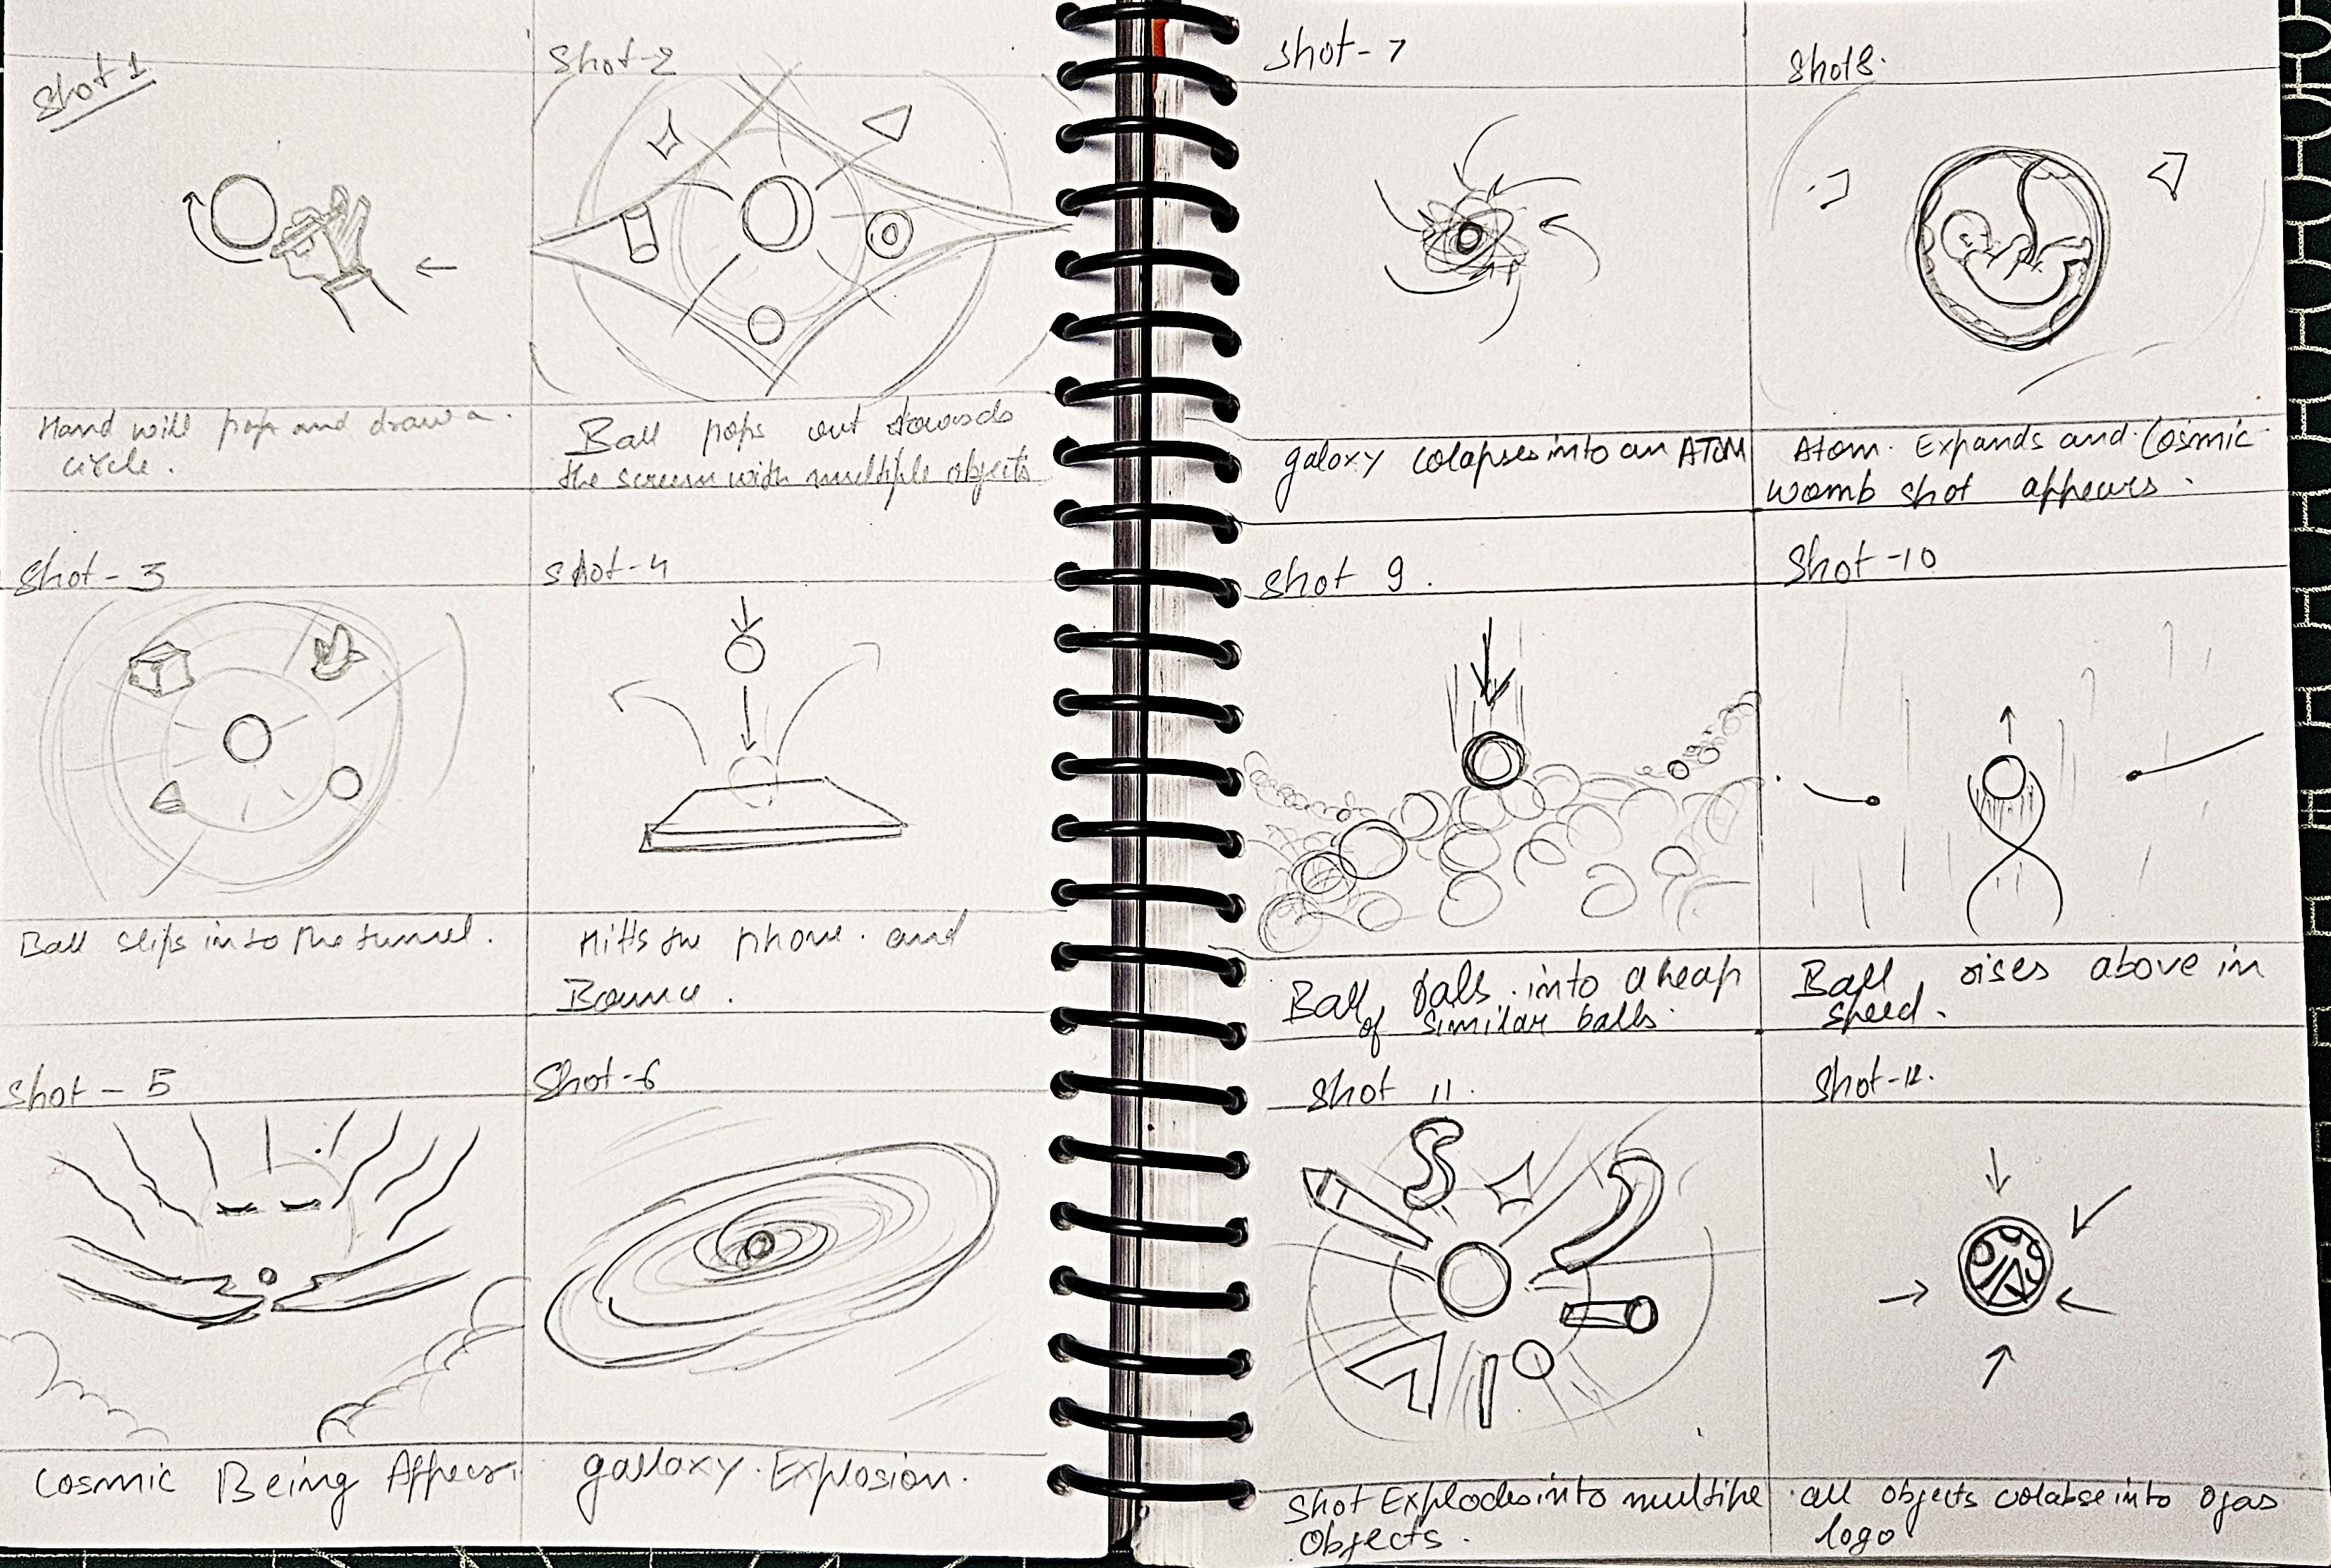 Shot 1
Hand will pop and draw a
circle.
Shot-2
Ball pops out towards
the screen with multiple objects
Shot-3
Ball slips into the tunnel.
Shot-4
Hitts the phone. and
Bounce.
Shot-5
Cosmic Being Appear.
Shot-6
gallaxy. Explosion.
Shot-7
galaxy colapses into an ATOM
Shot8.
Atom. Expands and Cosmic
womb shot appears.
Shot 9.
Ball falls. into a heap
of similar balls.
Shot-10
Ball rises above in
speed.
Shot 11.
Shot Explodes into multiple
Objects.
Shot-12.
all objects colabse into ojas
logo